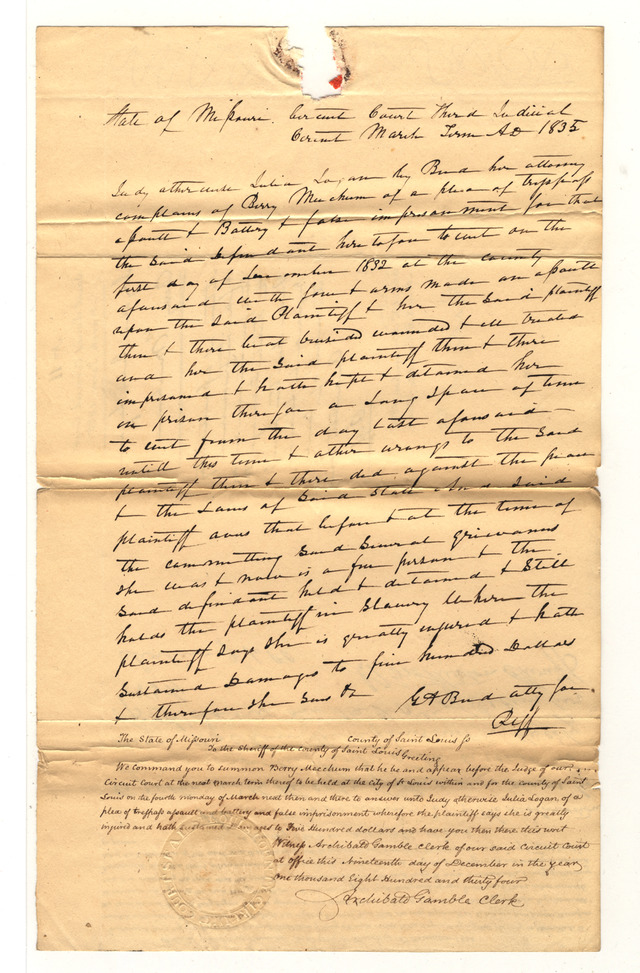 State of Missouri. Circuit Court Third Judicial
Circuit March Term AD 1835
Judy otherwise Julia Logan by Bird her attorney
complains of Berry Meachum of a plea of trespass
assault & Battery & false imprisonment for that
the said defendant heretofore to wit on the
first day of December 1832 at the county
aforesaid with force & arms made an assault
upon the said Plaintiff & her the said plaintiff
then & there beat bruised wounded & ill treated
and her the said plaintiff then & there
imprisoned & hath kept & detained her
in prison there for a long space of time
to wit from the day last aforesaid
untill this time & other wrongs to the said
plaintiff then & there did against the peace
& the Laws of said State And said
plaintiff avers that before & at the time of
the committing said several grievances
she was & now is a free person & the
said defendant held & detained & still
holds the plaintiff in slavery Wherefore the
plaintiff says she is greatly injured & hath
sustained Damages to five hundred Dollars
& therefore she sues &c
G A Bird atty for
Plff
The State of Missouri County of Saint Louis Ss
To the Sheriff of the county of Saint Louis Greeting
We command you to summon Berry Meechum that he be and appear before the Judge of our
Circuit court at the next march term thereof to be held at the city of St Louis within and for the county of Saint
Louis on the fourth monday of March next then and there to answer unto Judy otherwise Julia Logan of a
plea of trespass assault and battery and false imprisonment wherefore the plaintiff says she is greatly
injured and hath sustained Damages to Five Hundred dollars and have you then there this writ
Witness Archibald Gamble Clerk of our said Circuit Court
at office this Nineteenth day of December in the year
one thousand Eight Hundred and thirty four
Archibald Gamble Clerk